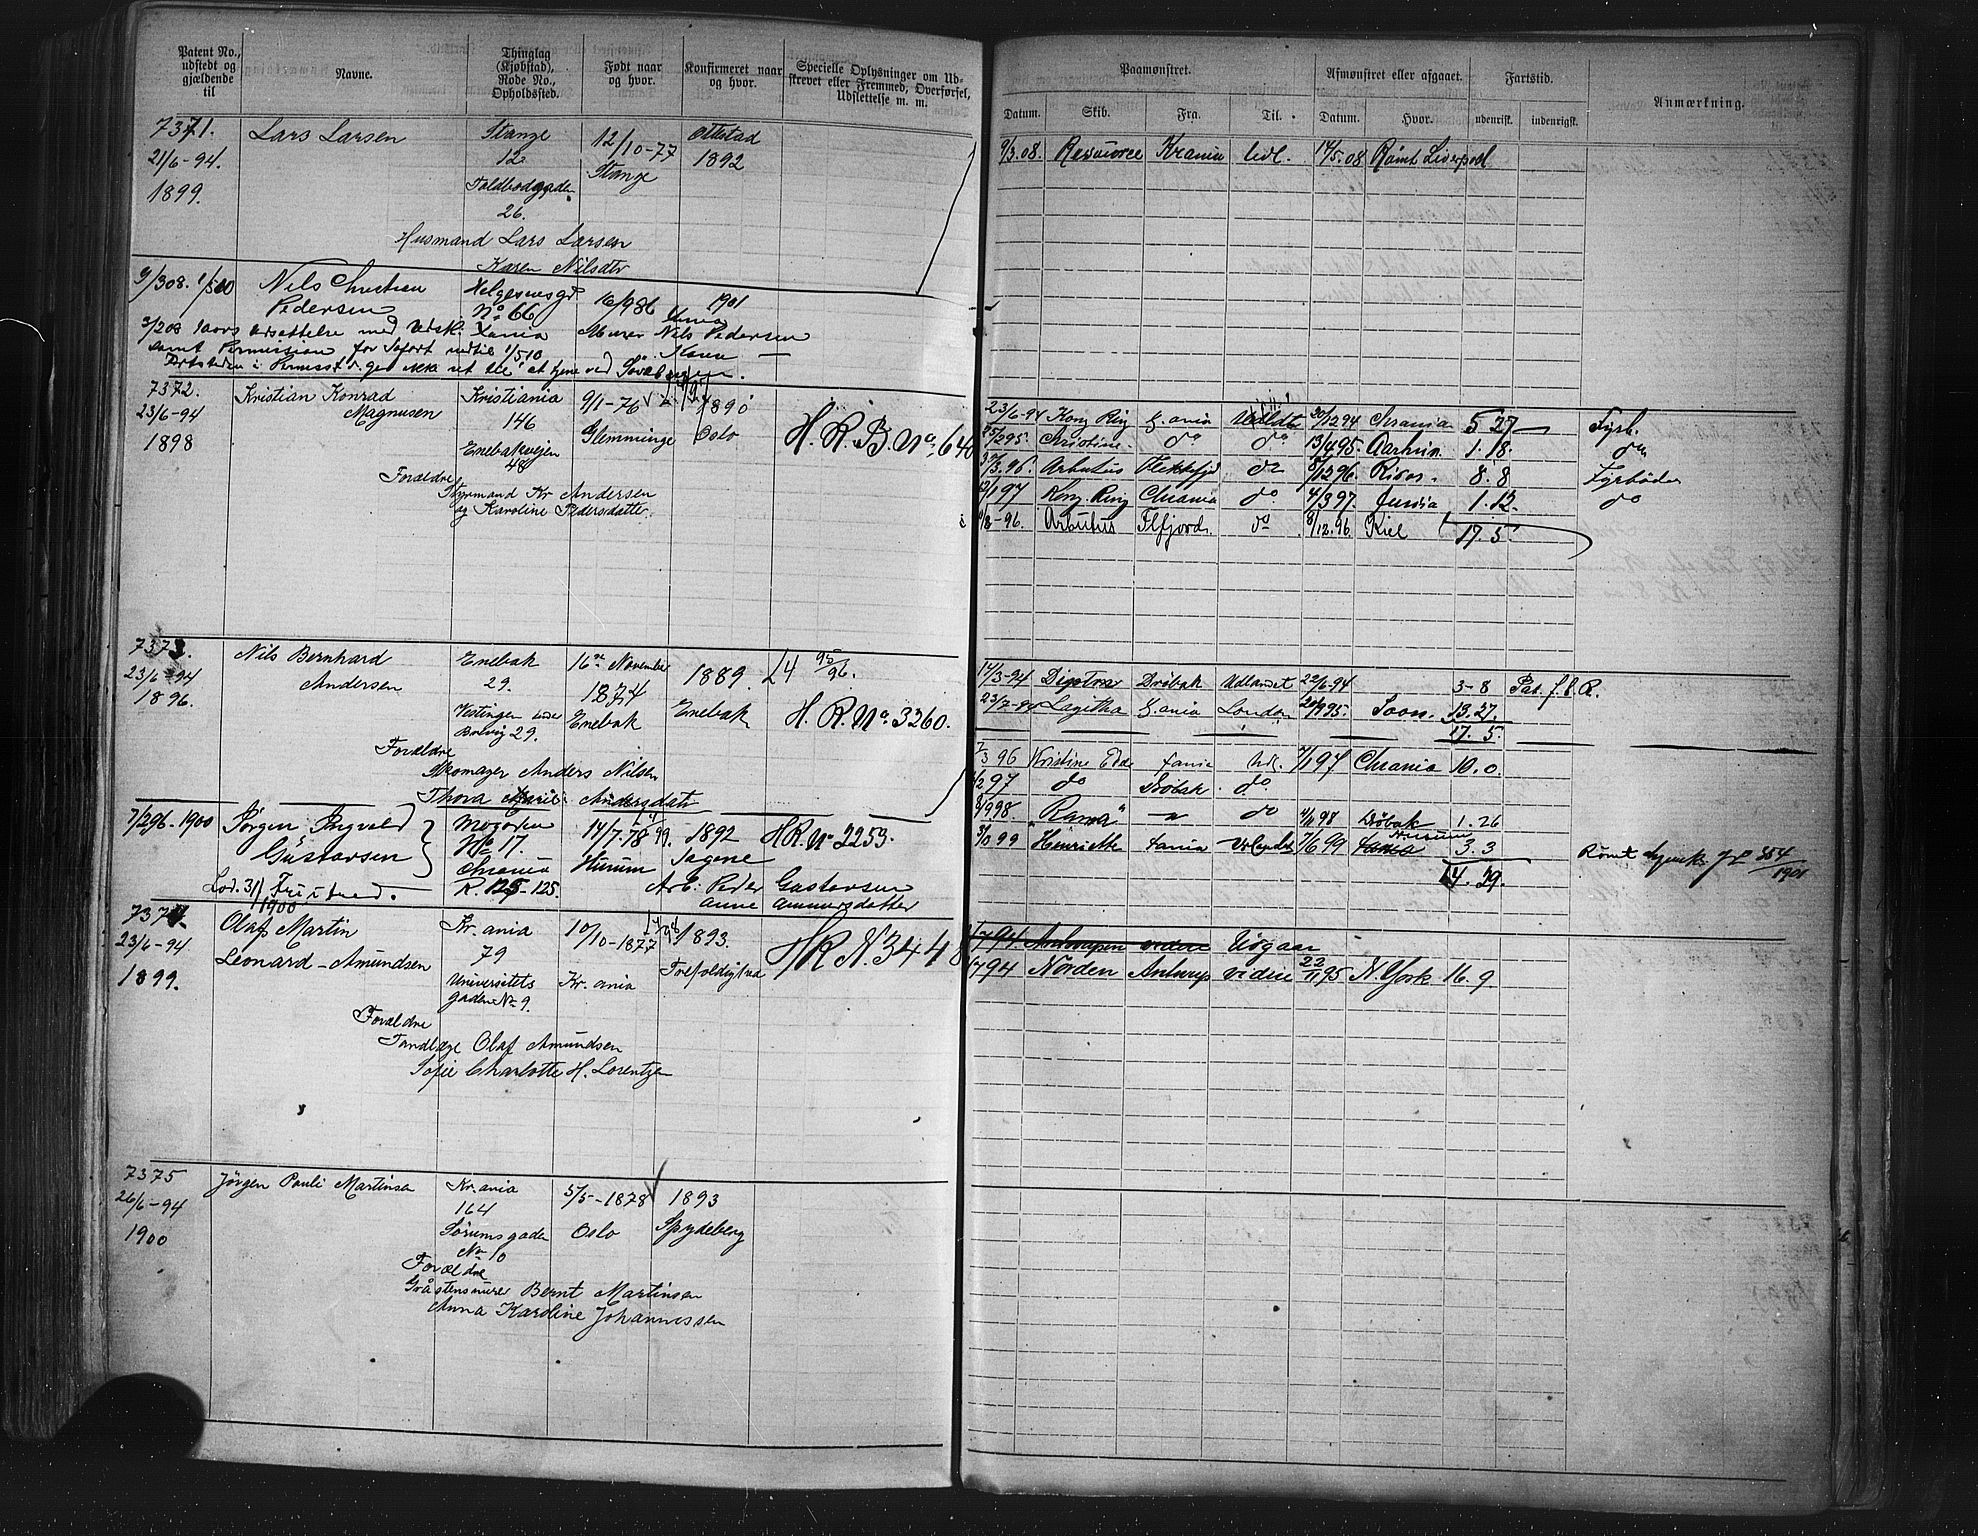 Patent No.,
udstedt og
gjældende
til
Navne.
Thinglag
(Kjøbstad),
Rode No.,
Opholdssted.
Født naar
og hvor.
Konfirmeret naar
og hvor.
Specielle Oplysninger om Ud-
skrevet eller Fremmed, Overførsel,
Udslettelse m. m.
7371.
21/6-94.
1899.
Lars Larsen
Stange
12
Toldbodgaden
26.
12/10-77
Stange
Ottestad
1892
Husmand Lars Larsen
Karen Nilsdtr
9/308. 1/510
Nils Christian
Pedersen
Helgesensgd
No 66
16/986
1901
Murer Nils Pedersen
Karen —
7372.
23/6-94
1898
Kristian Konrad
Magnusen
Kristiania
146
Enebakvejen
48
9/1-76
Glemminge
1890
Oslo
H. R. B. No. 640
Forældre
Styrmand Kr Andersen
og Karoline Pedersdatter
7373.
23/6-94
1896.
Nils Bernhard
Andersen
Enebak
29.
16de November
1874
Enebak
1889.
Enebak
L4 95/96.
H. R. No. 3260.
Forældre
Skomager Anders Nilsen
Thora Marie Andersdatr
7/296. 1900
Jørgen Ingvald
Gustavsen
No 17.
Chrania
R. 125-125.
14/7-78
Hurum
1892
Sagene
HR No 2253.
Arb. Peder Gustavsen
Anne Ammundsdatter
7374.
23/6-94.
1899.
Olaf Martin
Leonard-Amundsen
Kr. ania
79
Universitets
gaden No 9.
10/10-1877
Kr. ania
1893.
Trefoldighed
HR N 3448
Forældre
Tandlæge Olaf Amundsen
Sofie Charlotte H. Lorentzen
7375
26/6-94
1900
Jørgen Pauli Martinsen
Kr. ania
164
Sørumsgaden
No 10
5/5-1878
Oslo
1893
Spydeberg
Forældre
Gråstensmurer Bernt Martinsen
Anna Karoline Johannessen
Paamønstret.
Afmønstret eller afgaaet.
Fartstid.
Anmærkning.
Datum.
Skib.
Fra.
Til.
Datum.
Hvor.
udenrisk.
indenrigsk.
9/3.08. Ressource Krania Udl. 14/5.08 Rømt Liverpool
23/6-94 Kong Ring X.ania Udldt 20/1294 Chrania 5 27 Fyrb.
Christine. do do 13/495. Aarhus. 1.18. do
Arbutus Flekkefjd do 8/1296. Risør. 8.8 Fyrbøder
12/197 Kong. Ring Chrania do 4/397. 1.12. do
Arbutus Flfjord. do 8/12.96 Kiel 17.5
14/3-94 Drøbak Udlandet 22/6-94 3-8 Pat. f. f. R.
23/7-94 Lagitha X.ania London Soon. 13.27.
17. 5.
7/3 96 Kristine Udl. 7/197 Chrania 10.0.
do Drøbak do
"Rama" do Drøbak 1.26
Henriette Xania Udlandet 7/6 99 Xania 3.3
14.29.
Antwerpen videre Udgaar
Norden Antwerp videre 22/1195 N York 16.9